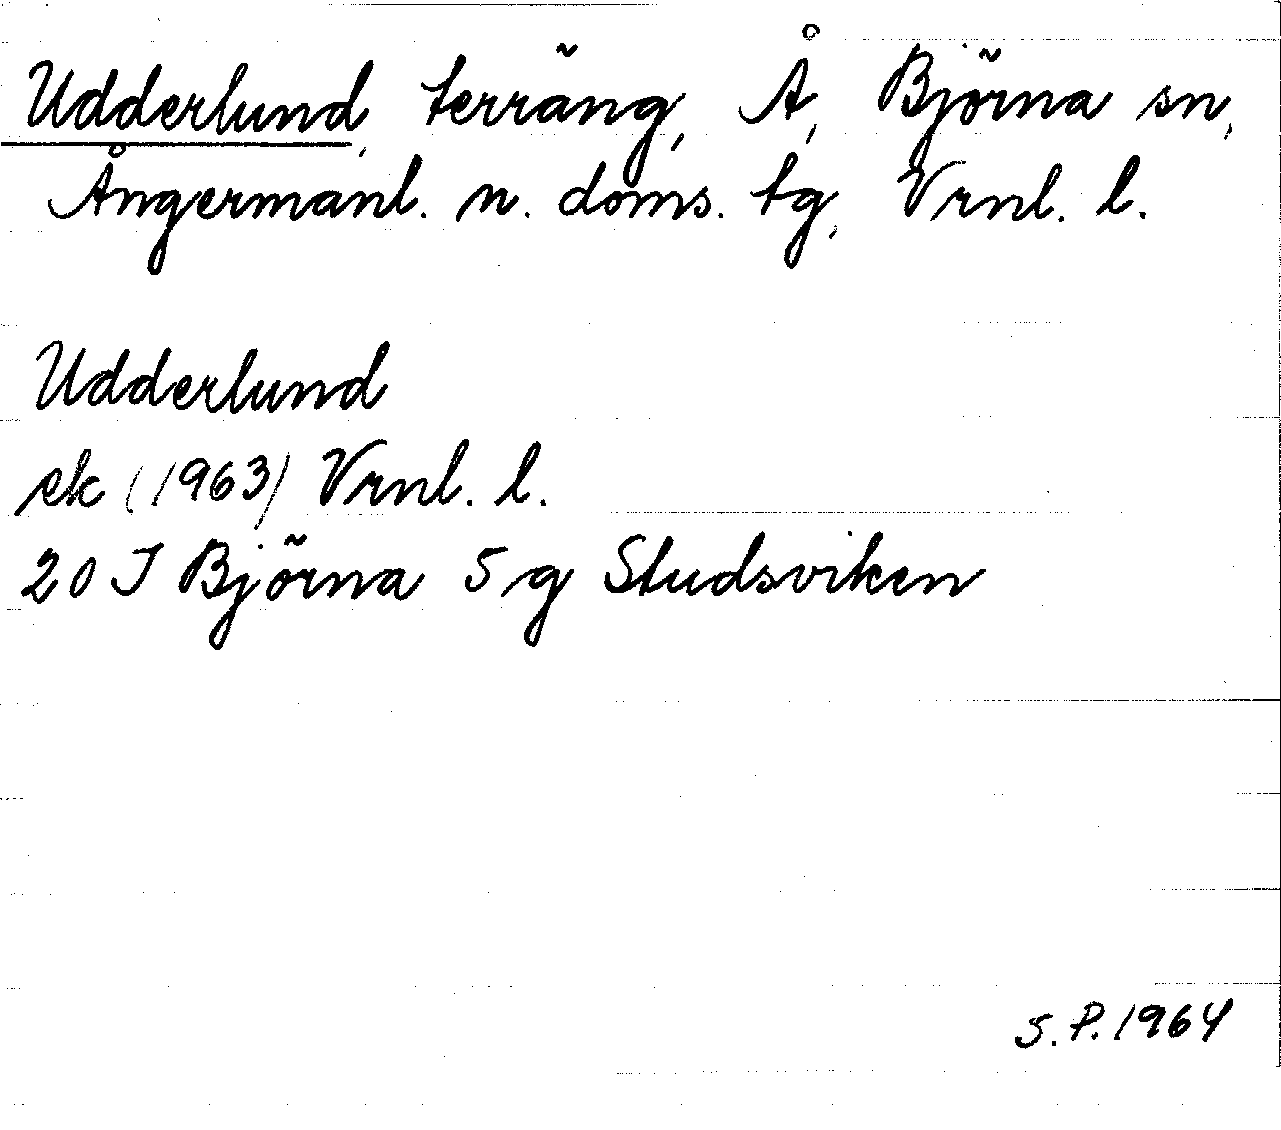 Udderlund, terräng, Å, Björna sn,
Ångermanl. n. doms. tg, Vrnl. l.
Udderlund
ek (1963) Vrnl. l.
20 J Björna 5 g Studsviken
S. P. 1964